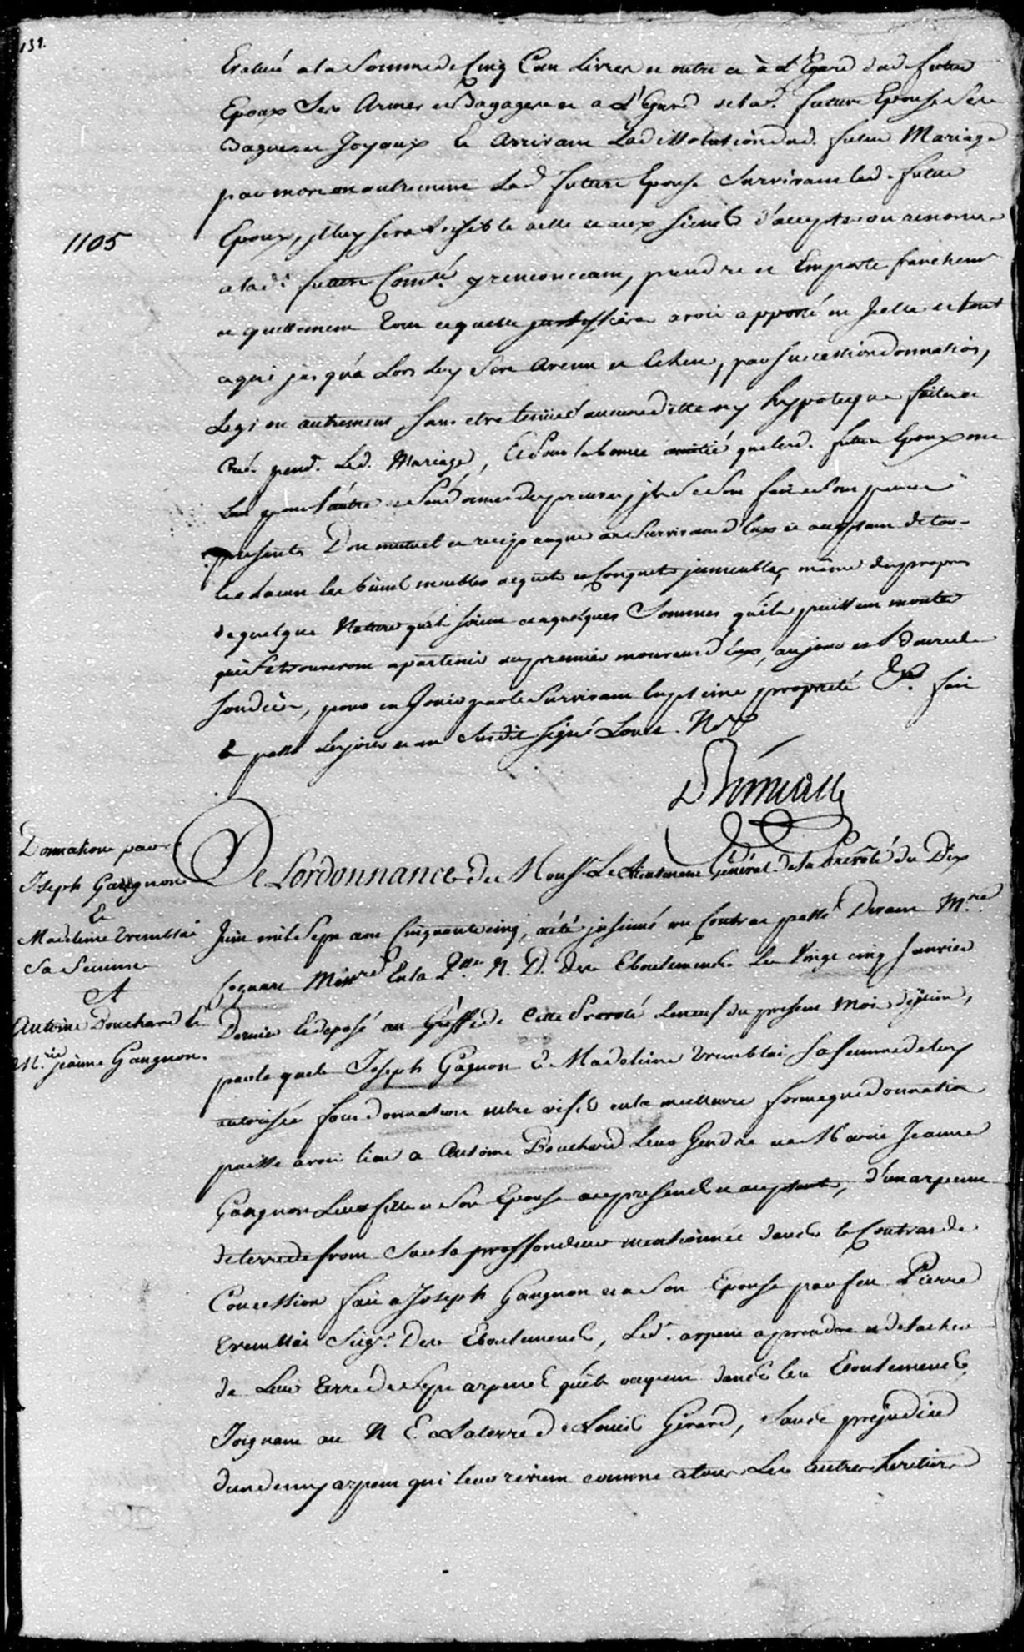 131.
Evalué a la Somme de Cinq Cens Livres et outre ce à L'Egard dud. futur
Epoux Ses Armes et Bagages et a L'Egard de lad. future Epouse Ses
Bagues et Joyaux Et Arrivant La dissolution dud. futur Mariage
par mort ou autrement Lad. future Epouse Survivant led. futur
1105
Epoux, il luy sera Loisible a elle et aux siens d'accepter ou renoncer
a lad. future Com.té y renoncant, prendre et Emporter franchement
et quittement tout ce quelle justiffiera avoir apporté en Icelle et tout
ce qui jusqu'à Lors luy Sera Avenu et Echeu, par Succession donnation,
Legs ou autrement, Sans etre tenüe d'aucune dette ny hypoteque faite et
Cré. pend. Led. Mariage, Et Pour la bonne amitié que lesd. futurs Epoux ont
Lun pour l'autre
presentes Don mutuel et reciproque au Survivant d'Eux ce acceptant de tous
les biens meubles acquets et Conquets immeubles, même des propres
de quelque Nature qu'ils soient et a quelques Sommes qu'ils puissent monter
qui Se trouveront apartenir au premier mourant d'Eux, au jour et
pour en Jouir par le Survivant en pleine propriété &c. fait
& passé les jour et an Susdit signé Loncle. N.re
Donnation par
Joseph Gangnon
Et
Madeleine Tremblai
Sa femme
A
Antoine Bouchard &
M.rie Jeanne Gangnon.
De Lordonnance de Mons.r Le Lieutenant Général de la Prevôté du Dix
Juin mil Sept cens Cinquante cinq, a été insinué un Contrat passé Devant M.re
Miss.re En la P.sse N. D. des Eboulements Le Vingt cinq Janvier
Dernier et deposé au Greffe de Cette Prevoté Le neuf du present Mois de juin,
par le quel Joseph Gagnon & Madeleine Tremblai Sa femme de luy
autorisée font donnation entre vifs en la meilleure forme que donnation
puisse avoir lieu a Antoine Bouchard Leur Gendre et a Marie Jeanne
Gangnon Leur fille et Son Epouse ace presens et acceptant, d'un arpent
de terre de front Sur la proffondeur mentionnée dans le Contrat de
Concession fait a Joseph Gangnon et a Son Epouse par feu Pierre
Tremblai Seig.r Des Eboulements, Led. arpent a prendre et detacher
de Leur terre de Sept arpens qu'ils occupent dans les Eboulements,
Joignant au N E a La terre de Louis Gérard, Sans préjudice
dun demy arpent qui leur revient comme a tous Les autres heritiers